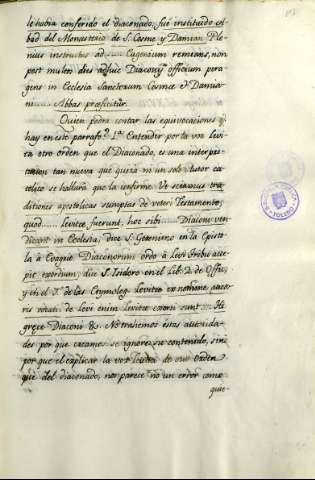 le habia conferido el diaconado, fué instituido Ab
bad del Monasterio de S. Cosme y Damian. Ple-
nius instructus ad...... Eugenium remeans, non
post multos dies adhuc Diaconij officium pera-
gens in Ecclesia Sanctorum Cosmæ et Damia-
ni..... Abbas præficitur.
Quien podra contar las equivocaciones q
hay en este parrafo? 1.a Entender por la voz levi
ta otro orden que el Diaconado, es una interpre
tacion tan nueva que quizá ni un solo Autor ca
tolico se hallará que la confirme. Ut sciamus tra
ditiones apostolicas sumptas de veteri Testamento,
quod...... levitæ fuerunt, hoc sibi..... Diaconi ven
dicant in Ecclesia, dice S. Geronimo en la Episto
la à Evagrio. Diaconorum ordo à Levi tribu acce
pit exordium, dice S. Isidoro en el Lib. 2. de Offic.
y en el 7. de las Etymolog. Levitæ ex nomine aucto
ris vocati: de Levi enim levitæ exorti sunt.... Hi
græce Diaconi &c. No trahemos estas autorida-
des por que creamos se ignore su contenido, sino
por que el explicar la voz levita de otro orden
que del diaconado, nos parece no un error como
quie-
TOLEDO